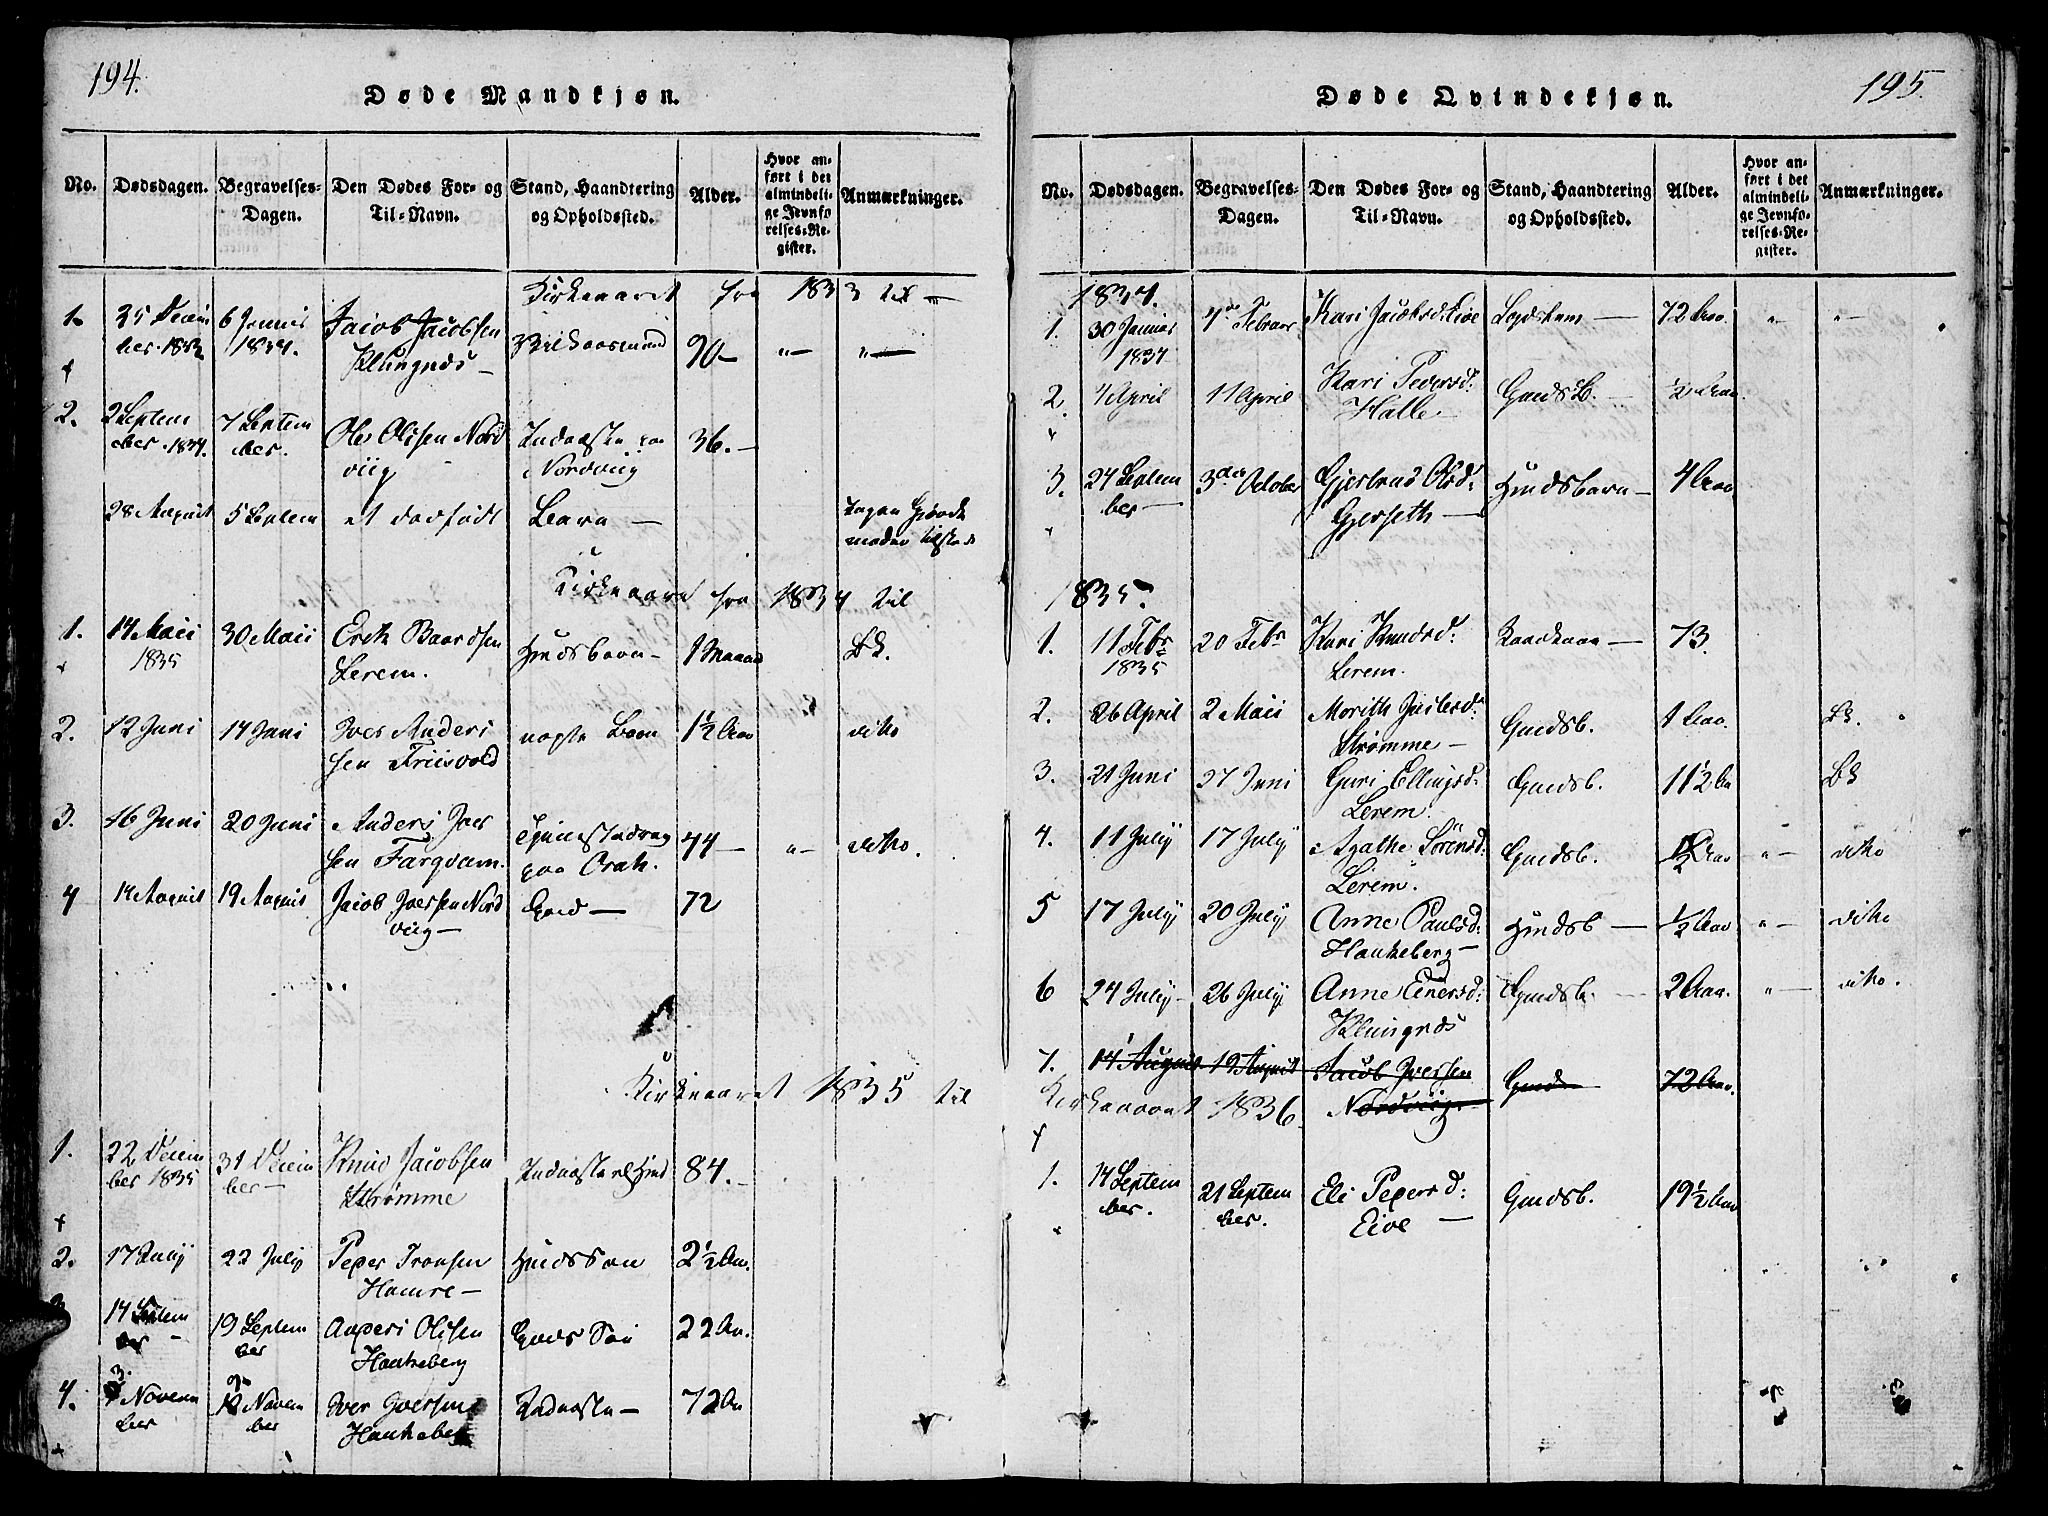 194.
Døde Mandkjøn.
No.
Dødsdagen.
Begravelses-
Dagen.
Den Dødes For- og
Til-Navn.
Stand, Haandtering
og Opholdssted.
Alder.
Hvor an-
ført i det
almindeli-
ge Jevnfø
relses-Re-
gister.
Anmærkninger.
Kirkeaaret fra 1833 til
1.
25 Decem
ber 1833
6 Januar
1834.
Jacob Jacobsen
Klungnæs
90
2.
2 Septem
ber 1834.
7 Septem
ber.
Ole Olsen Nord
viig
Inderste paa
Nordviig
36.
28 August
5 Septem
et dødfødt
Barn
Kirkeaaret fra 1834 til
1.
14 Maii
1835
30 Maii
Erik Baardsen
Lerem.
Huusbarn
1 Maaned
2.
12 Juni
14 Juni
Iver Anders
sen Friisvold
Barn
1½ Aar
dito
3.
16 Juni
20 Juni
Anders
sen
44
dito.
4
14 August
19 August
Jacob Iversen Nord
viig
72
Kirkeaaret 1835 til
1.
22 Decem
ber 1835
31 Decem
ber
Knud Jacobsen
Strømme
84.
2.
17 July
22 July
Peder Tronsen
Hamre
2½ Aar.
14 Septem
ber
19 Septem
ber
Olsen
Haukeberg
22 Aar.
4.
Novem
ber
Novem
ber
Iver Iversen
Haukeberg
Inderste
72 Aar
195.
Døde Qvindekjøn.
No.
Dødsdagen.
Begravelses-
Dagen.
Den Dødes For- og
Til-Navn.
Stand, Haandtering
og Opholdssted.
Alder.
Hvor an-
ført i det
almindeli-
ge Jevnfø-
relses-Re-
gister.
Anmærkninger.
1834.
1.
30 Januar
1834
4de Februar
Kari Jacobsd. Eive
72 Aar.
2.
4 April
11 April
Kari Pedersd:
Halle
Gaardsb.
½ Aar.
3.
24 Septem
ber
3die October
Gjertrud Olsd:
Gjerseth
Huusbarn
4 Aar
1835.
1.
11 Febr
1835
20 Febr
Kari Knudsd:
Lerem.
73.
2.
26 April
2 Maii
Marith
Strømme
Gaardsb.
1 Aar.
3.
21 Juni
27 Juni
Guri Ellingsd:
Lerem.
Gaardsb.
11½ Aar
4.
11 July
17 July
Agathe Sørensd:
Lerem.
Gaardsb.
Aar
dito
5
17 July
20 July
Anne Paulsd:
Haukeberg
Huusb
½ Aar
dito
6
24 July
26 July
Anne Einersd:
Klungnæs
Gaardsb.
2 Aar.
dito.
7.
14 August
19 August
Jacob Iversen
Nordviig
Gaard
72 Aar.
Kirkeaaret 1836.
1.
14 Septem
ber.
21 Septem
ber.
Eli Pedersd:
Eive
Gaardsb.
19½ Aar